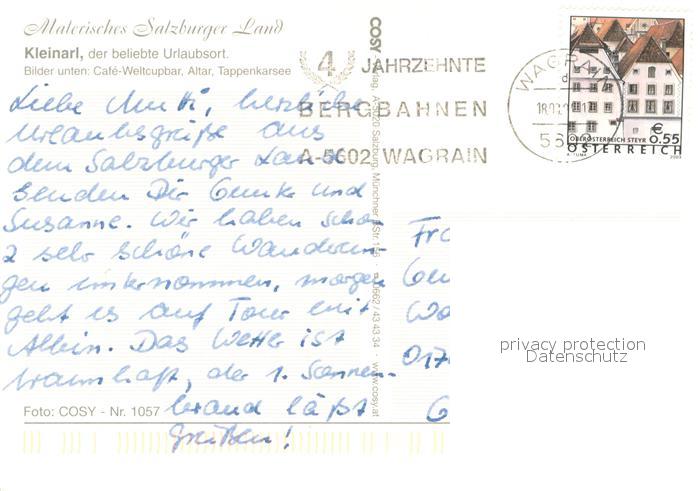 Malerisches Salzburger Land
Kleinarl, der beliebte Urlaubsort.
Bilder unten: Café-Weltcupbar, Altar, Tappenkarsee
4 JAHRZEHNTE
BERGBAHNEN
A-5602 WAGRAIN
WAGRAIN
€ 0.55
OBERÖSTERREICH STEYR
ÖSTERREICH
2003
Liebe Mutti, herzliche
Urlaubsgrüße aus
dem Salzburger Lande
senden Dir Gunter und
Susanne. Wir haben schon
2 sehr schöne Wanderun-
gen unternommen, morgen
geht es auf Tour mit
Albin. Das Wetter ist
traumhaft, der 1. Sonnen-
brand läßt
grüßen!
Foto: COSY - Nr. 1057
COSY
Salzburg, Münchner
0662/43 43 34 · www.cosy.at
017
privacy protection
Datenschutz